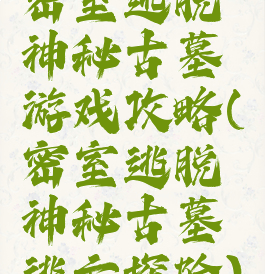 密室逃脱
神秘古墓
游戏攻略(
密室逃脱
神秘古墓
逃亡探险)